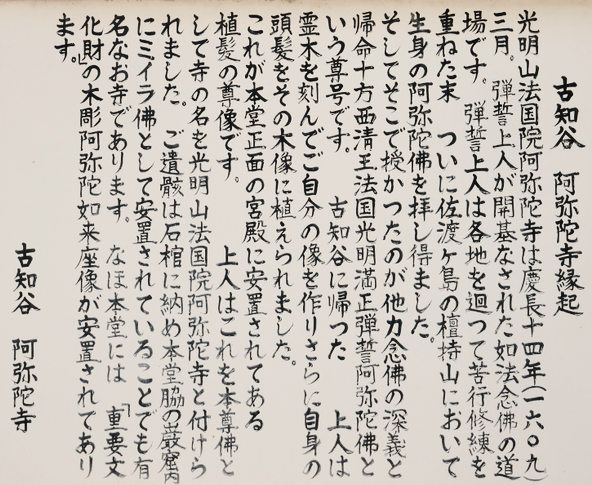 古知谷　阿弥陀寺縁起
光明山法国院阿弥陀寺は慶長十四年(一六〇九)
三月。弾誓上人が開基なされた如法念佛の道
場です。弾誓上人は各地を廻つて苦行修練を
重ねた末　ついに佐渡ヶ島の檀持山において
生身の阿弥陀佛を拝し得ました。
そしてそこで授かつたのが他力念佛の深義と
帰命十方西清王法国光明満正弾誓阿弥陀佛と
いう尊号です。　古知谷に帰つた　上人は
霊木を刻んでご自分の像を作りさらに自身の
頭髪をその木像に植えられました。
これが本堂正面の宮殿に安置されてある
植髪の尊像です。　上人はこれを本尊佛と
して寺の名を光明山法国院阿弥陀寺と付けら
れました。ご遺骸は石棺に納め本堂脇の巌窟内
にミイラ佛として安置されていることでも有
名なお寺であります。なほ本堂には　「重要文
化財」の木彫阿弥陀如来座像が安置されてあり
ます。
古知谷　阿弥陀寺